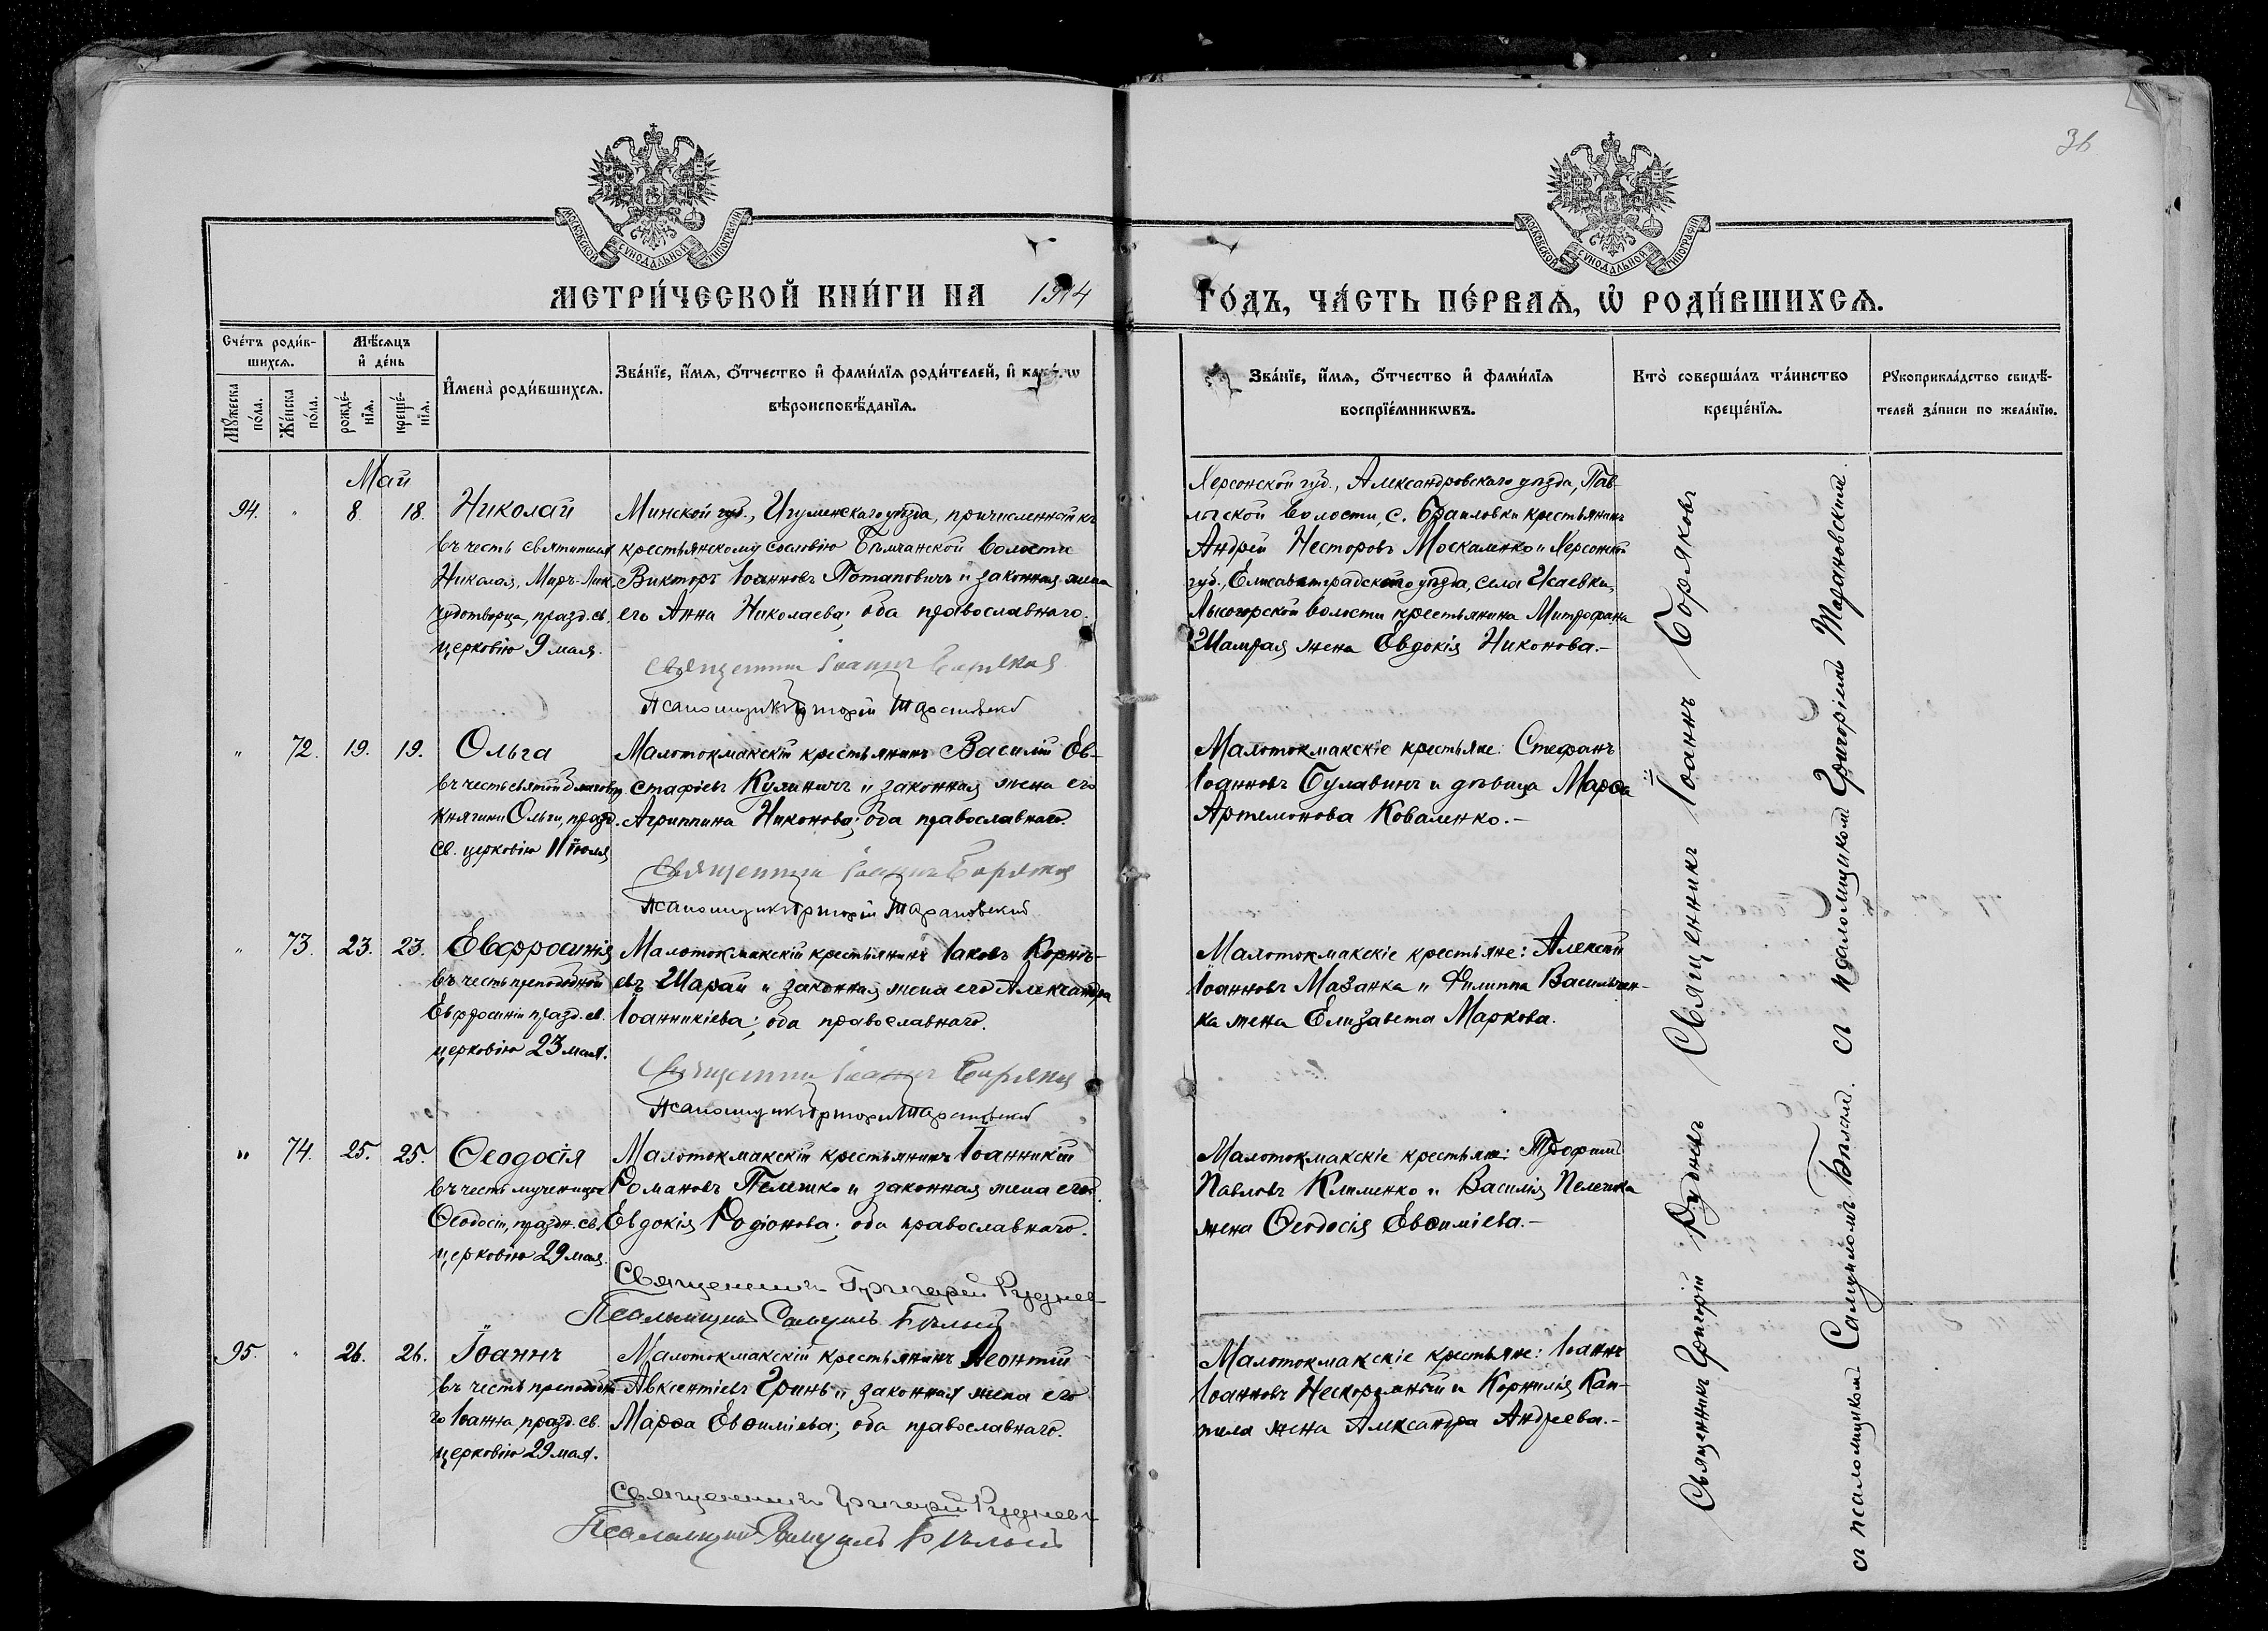 36
МОСКОВСКОЙ СѴНОДАЛЬНОЙ ТИПОГРАФІИ
МОСКОВСКОЙ СѴНОДАЛЬНОЙ ТИПОГРАФІИ
МЕТРИ́ЧЕСКОЙ КНИ́ГИ НА 1914
ГО́ДЪ, ЧА́СТЬ ПЕ́РВАЯ, Ѡ҆ РОДИ́ВШИХСЯ.
Сче́тъ роди́в-
шихся.
Мꙋ́жеска по́ла.
Же́нска по́ла.
Мѣ́сяцъ
и҆ де́нь
рожде́-
нїя.
креще́-
нїя.
И҆мена̀ роди́вшихся.
Зва́нїе, и҆́мя, ѻ҆́тчество и҆ фами́лїя роди́телей, и҆ како́гѡ
вѣроисповѣ́данїя.
Зва́нїе, и҆́мя, ѻ҆́тчество и҆ фами́лїя
воспрїе́мникѡвъ.
Кто̀ соверша́лъ та́инство
креще́нїя.
Рꙋкоприкла́дство свидѣ́-
телей за́писи по жела́нїю.
Май
94. " 8 18. Николай
въ честь святителя
Николая, Мѵръ-Лик.
чудотворца, празд. св.
церковію 9 мая.
Минской губ., Игуменскаго уѣзда, причисленный къ
крестьянскому сословію волости
Викторъ Іоанновъ Потаповичъ и законная жена
его Анна Николаева; оба православнаго.
Священникъ Іоаннъ Боряковъ
Псаломщикъ Григорій Тарановскій
Херсонской губ., Александровскаго уѣзда, Пав-
лышской волости, с. Браиловки крестьянинъ
Андрей Несторовъ Москаленко и Херсонской
губ., Елисаветградскаго уѣзда, села Исаевки,
Лысогорской волости крестьянина Митрофана
Шамрая жена Евдокія Никонова.–
" 72. 19. 19. Ольга
въ честь святой благовѣр.
княгини Ольги, празд.
св. церковію 11 іюля
Малотокмакскій крестьянинъ Василій Ев-
стафіевъ Кулиничъ и законная жена его
Агриппина Никонова; оба православнаго.
Священникъ Іоаннъ Боряковъ
Псаломщикъ Григорій Тарановскій
Малотокмакскіе крестьяне: Стефанъ
Іоанновъ Булавинъ и дѣвица Марѳа
Артемонова Коваленко.–
" 73. 23. 23. Евфросинія
въ честь преподобной
Евфросиніи празд. св.
церковію 23 мая.
Малотокмакскій крестьянинъ Іаковъ Корнѣ-
евъ Шарай и законная жена его Александра
Іоанникіева; оба православнаго.
Священникъ Іоаннъ Боряковъ
Псаломщикъ Григорій Тарановскій
Малотокмакскіе крестьяне: Алексѣй
Іоанновъ Мазанка и Филиппа Васильчен-
ка жена Елизавета Маркова.
" 74. 25. 25. Ѳеодосія
въ честь мученицы
Ѳеодосіи, праздн. св.
церковію 29 мая.
Малотокмакскій крестьянинъ Іоанникій
Романовъ Пелешко и законная жена его
Евдокія Родіонова; оба православнаго.
Священникъ Григорій Рудневъ
Псаломщикъ Самуилъ Бѣлый
Малотокмакскіе крестьяне: Трофимъ
Павловъ Клименко и Василія Пелешка
жена Ѳеодосія Евѳиміева.–
95. " 26. 26. Іоаннъ
въ честь преподобна-
го Іоанна, празд. св.
церковію 29 мая.
Малотокмакскій крестьянинъ Леонтій
Авксентіевъ Гринь и законная жена его
Марѳа Евѳиміева; оба православнаго.
Священникъ Григорій Рудневъ
Псаломщикъ Самуилъ Бѣлый
Малотокмакскіе крестьяне: Іоаннъ
Іоанновъ Нескоромный и Корнилія Кап-
тела жена Александра Андреева.–
Священникъ Іоаннъ Боряковъ
съ псаломщикомъ Григоріемъ Тарановскимъ.
Священникъ Григорій Рудневъ
съ псаломщикомъ Самуиломъ Бѣлым.